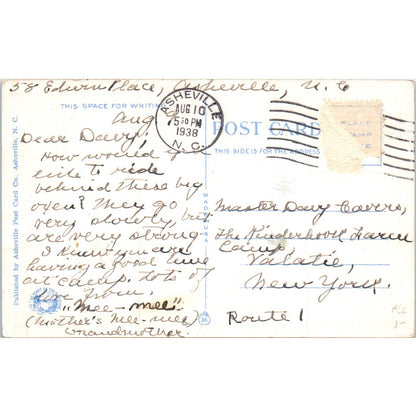 58 Edwin Place, Asheville, N.C
THIS SPACE FOR WRITING
Aug
ASHEVILLE
AUG 10
5 30 PM
1938
N.C.
POST CARD
THIS SIDE IS FOR THE ADDRESS
PLACE
STAMP
HERE
Dear Davy,
How would you
like to ride
behind these big
oxen? They go
very slowly, but
are very strong.
I know you are
having a good time
at camp. Lots of
love from,
"Mee-mee"
(Mother's Mee-mee)
Grandmother.
Master Davy Cavers,
The Kinderhook Farm
Camp
Valatie,
New York.
Route 1
Published by Asheville Post Card Co., Asheville, N. C.
MADE IN U.S.A.
M